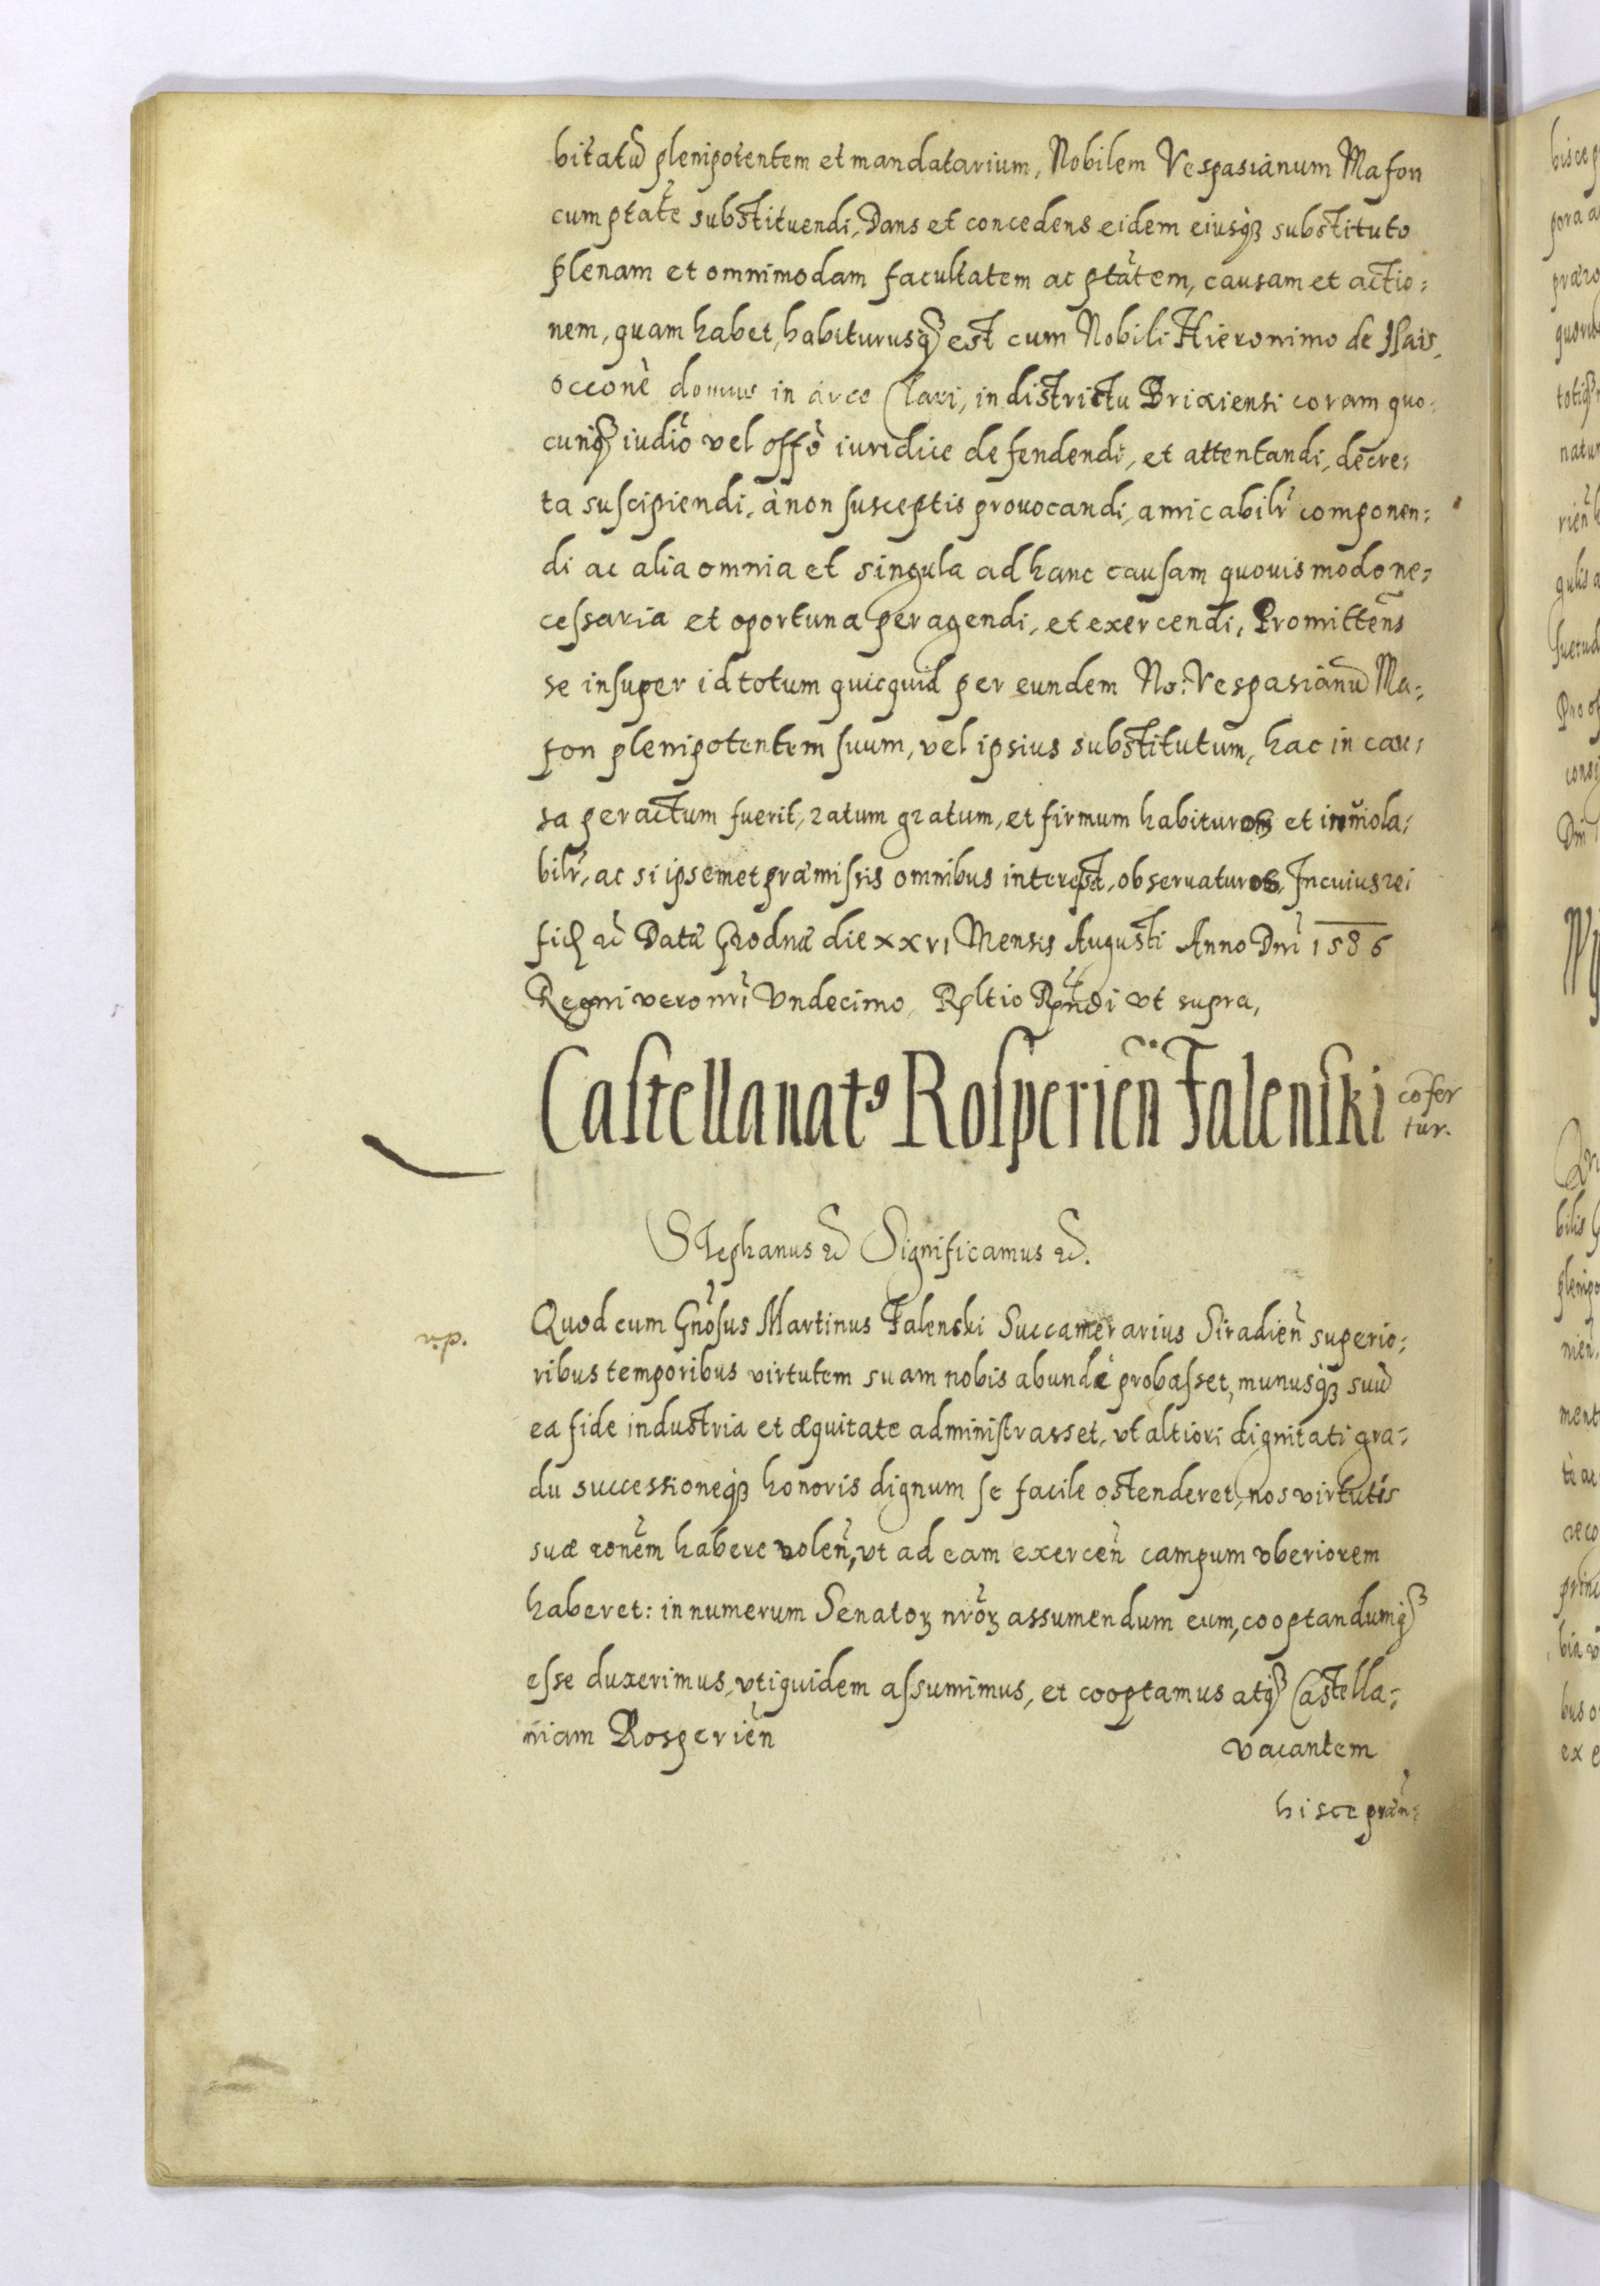 bitatū plenipotentem et mandatarium, Nobilem Vespasianum Mafon
cum ptate substituendi, Dans et concedens eidem eiusq3 substituto
plenam et omnimodam facultatem ac ptātem, causam et actio:
nem, quam habet, habiturusq3 est cum Nobili Hieronimo de
occonè domus in arce Clari, in districtu Brixiensi coram quo:
cunq3 iudiō vel offō iuridice defendendi, et attentandi, decre:
ta suscipiendi, à non susceptis prouocandi, amicabilr componen:
di ac alia omnia et singula ad hanc causam quouis modo ne:
cessaria et oportuna peragendi, et exercendi, Promittens
se insuper id totum quicquid per eundem No: Vespasianū Ma:
fon plenipotentem suum, vel ipsius substitutum, hac in cau:
sa peractum fuerit, ratum gratum, et firmum habiturum et inuiola:
bilr, ac si ipsemet præmissis omnibus interest, obseruaturos. In cuius rei
Datæ Grodnæ die xxvi Mensis Augusti Anno Dni 1586
Regni vero nri Vndecimo, Rltio Rndi vt supra,
Castellanat9 Rosperien̄ Falenski cōfer
tur.
Stephanus etc Significamus etc.
Quod cum Gnōsus Martinus Falenski Succamerarius Siradien̄ superio:
ribus temporibus virtutem suam nobis abunde probasset, munusq3 suū
ea fide industria et æquitate administrasset, vt altiori dignitati gra:
du successioneq3 honoris dignum se facile ostenderet, nos virtutis
suæ ronem habere volen̄, vt ad eam exercen̄ campum vberiorem
haberet: in numerum Senatoꝝ nrōꝝ assumendum eum, cooptandumq3
esse duxerimus, vti quidem assumimus, et cooptamus atq3 Castella:
niam Rosperien̄ vacantem
hisce præn: